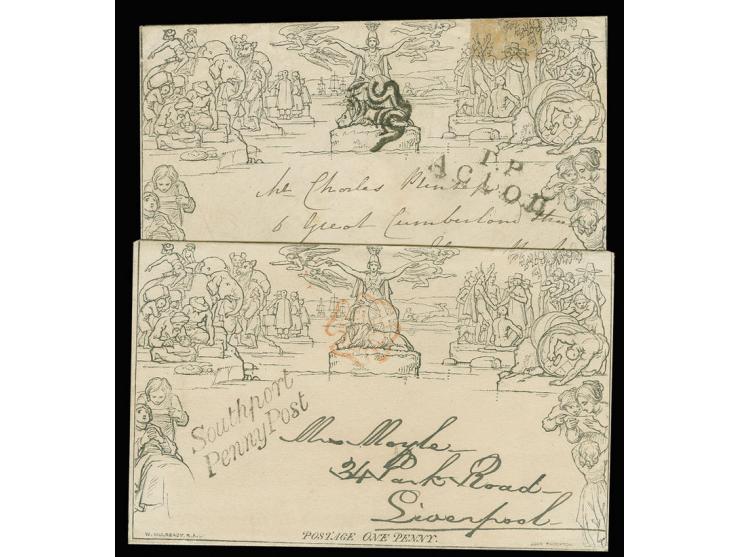 T.P
ACTON
Mr Charles
6 Great Cumberland
Southport
Penny Post
Mrs Moyle
34 Park Road
Liverpool
W. MULREADY, R.A.
POSTAGE ONE PENNY.
JOHN THOMPSON